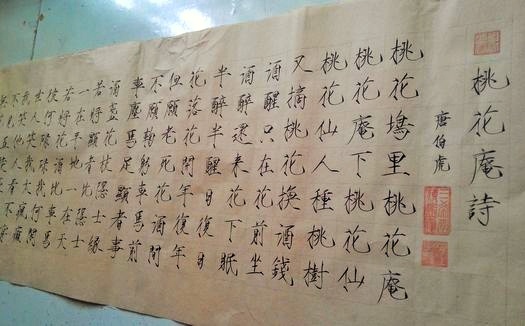 桃花庵詩
唐伯虎
桃花塢里桃花庵
桃花庵下桃花仙
桃花仙人種桃樹
又摘桃花換酒錢
酒醒只在花前坐
酒醉還來花下眠
半醉半醒日復日
花落花開年復年
但願老死花酒間
不願鞠躬車馬前
車塵馬足顯者事
酒盞花枝隱士緣
若將顯者比隱士
一在平地一在天
若將花酒比車馬
彼何碌碌我何閒
世人笑我太瘋癲
我笑他人看不穿